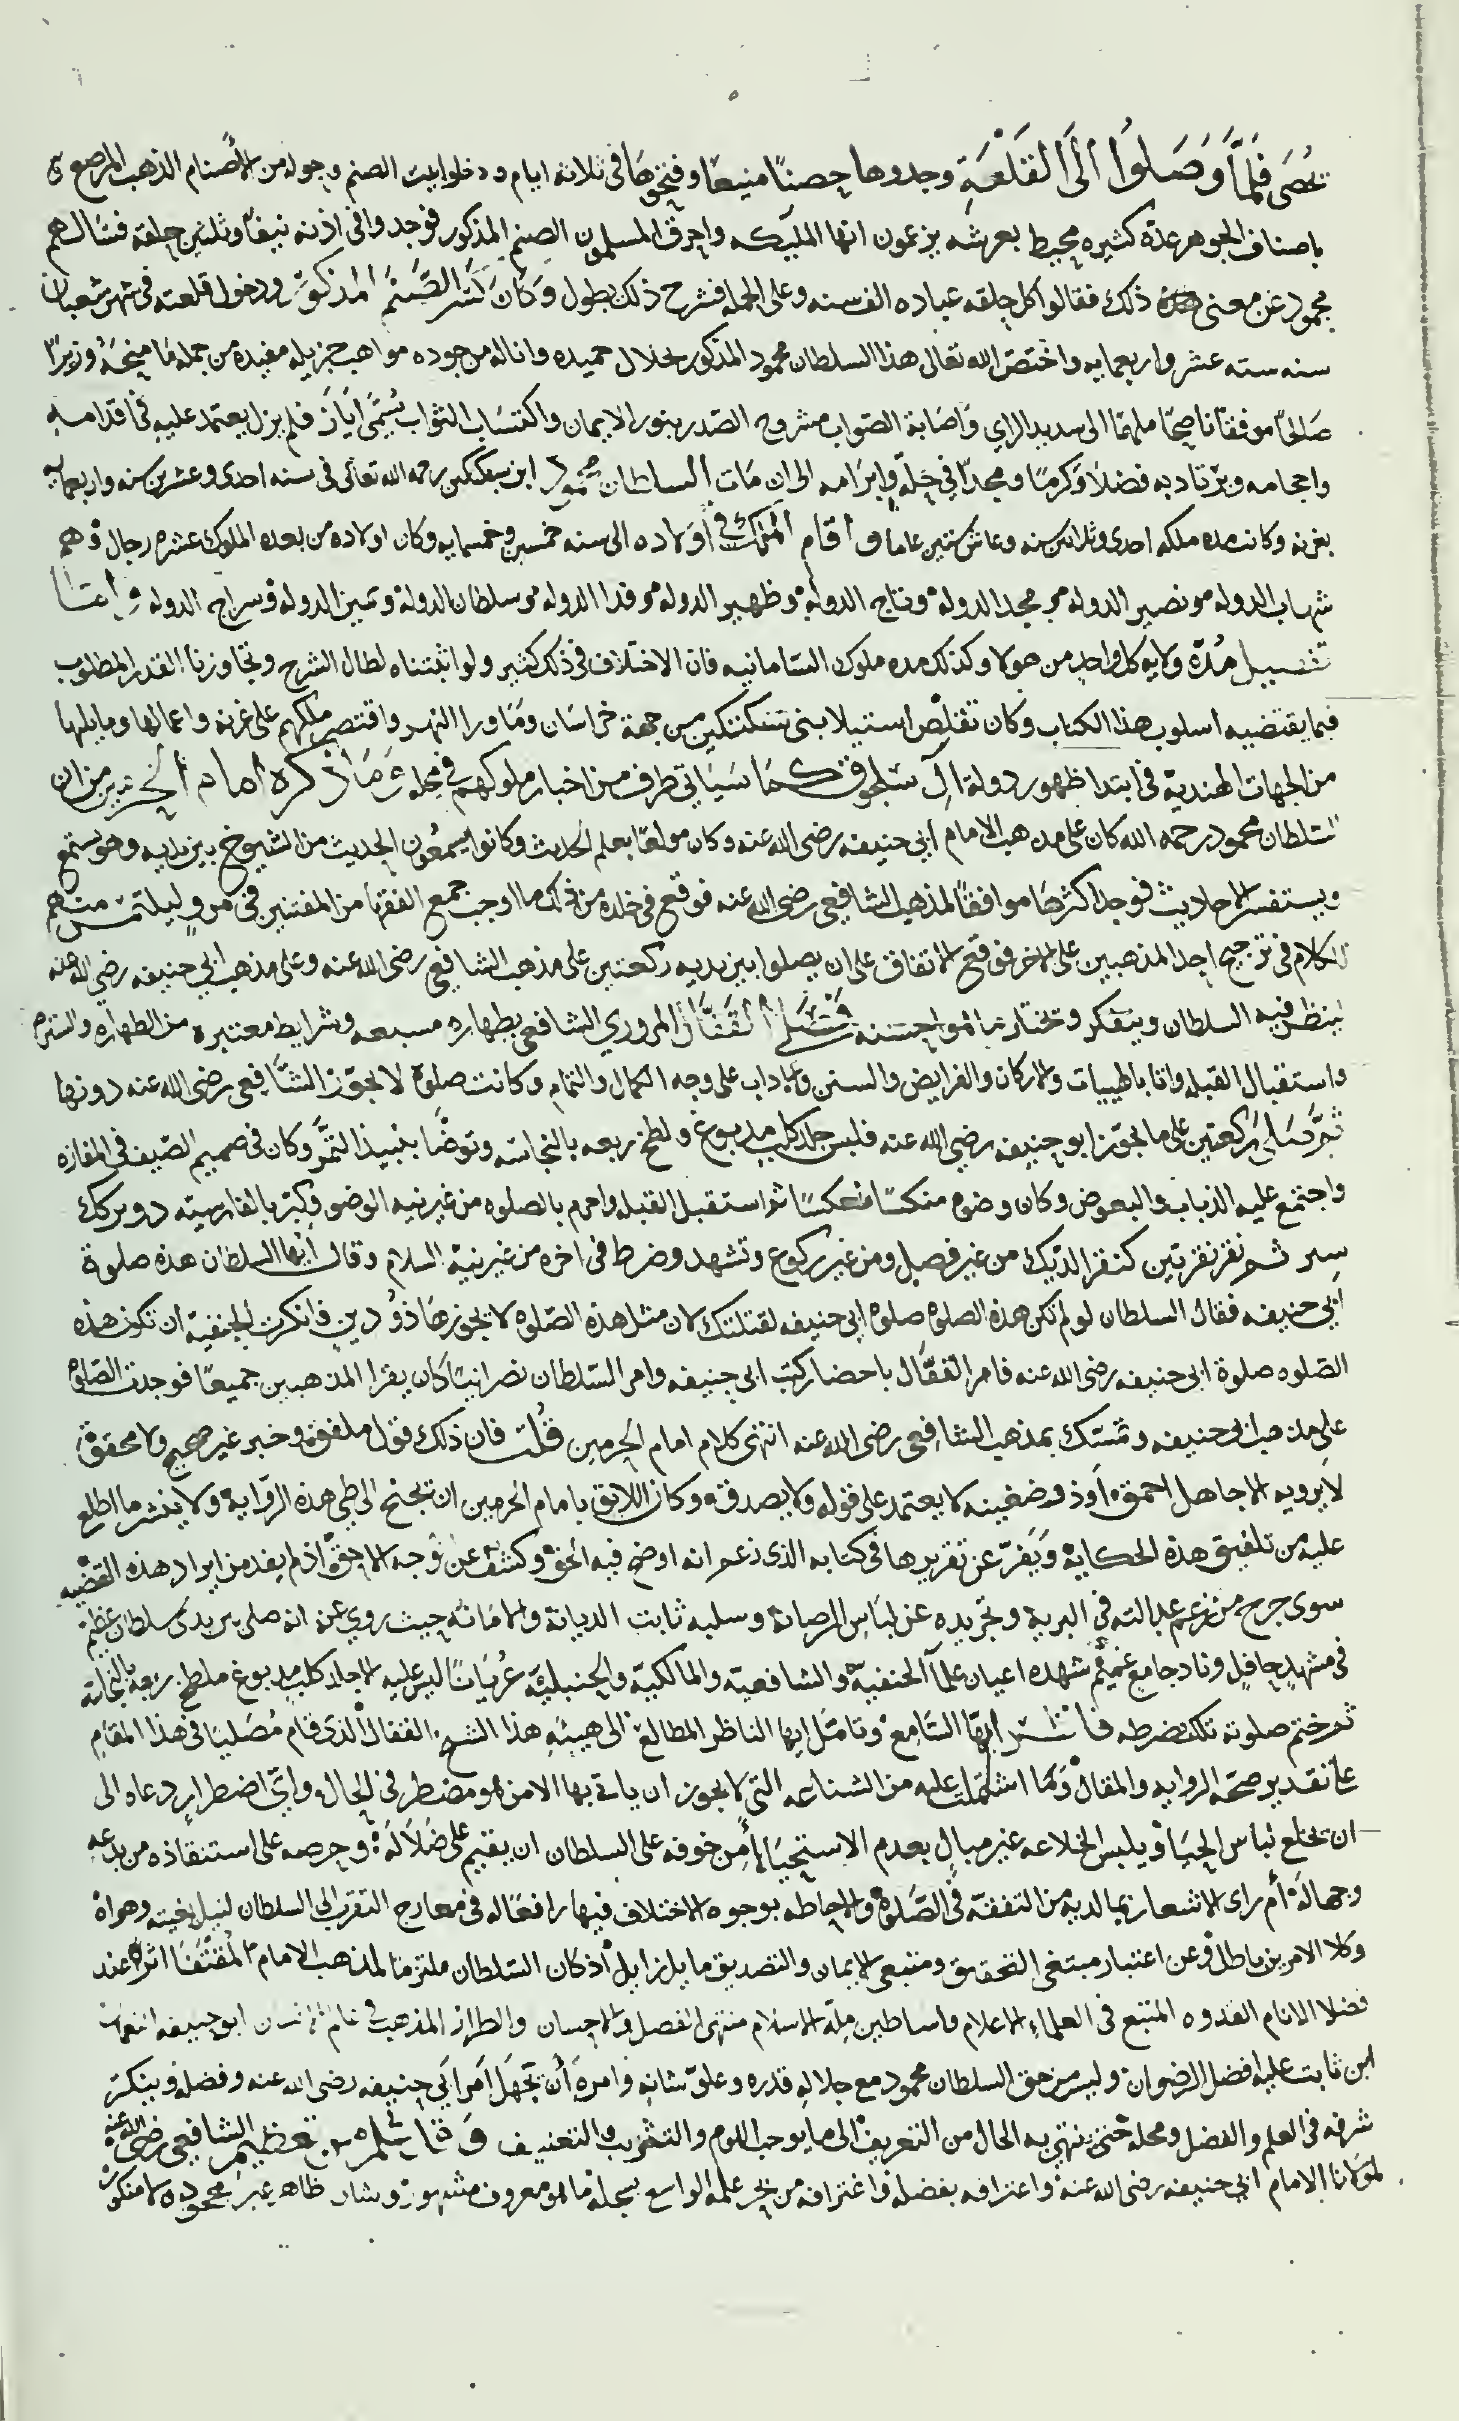 تحصى فلما وصلوا الى القلعة وجدوها حصنا منيعا وفتحوها فى ثلاثة ايام ودخلوا بيت الصنم وحوله من الاصنام الذهب المرصع
باصناف الجوهر عدة كثيره محيط بعرشه يزعمون انها المليكه واحرق المسلمون الصنم المذكور فوجدوا فى اذنه نيفا وثلثين حلقة فسالهم
محمود عن معنى ذلك فقالوا كل حلقه عباده الف سنه وعلى الجمله فشرح ذلك يطول وكان كسر الصنم المذكور ودخول قلعته فى شهر شعبان
سنه سته عشر واربعمايه واختص الله تعالى هذا السلطان محمود المذكور بخلال حميده واناله من جوده مواهب جزيله مفيدة من جملة ما منحه وزيرا
صالحا موفقا ناصحا ملهما الى سديد الراي واصابة الصواب مشروح الصدر بنور الايمان واكتساب الثواب يسمى اياز فلم يزل يعتمد عليه فى اقدامه
واحجامه ويرتاد به فضلا وكرما ومجدا فى حله وابرامه الى ان مات السلطان محمود ابن سبكتكين رحمه الله تعالى فى سنه احدى وعشرين سنه واربعمايه
بغزنه وكانت مده ملكه احدى وثلاثين سنه وعاش ستين عاما واقام الملك فى اولاده الى سنه خمسين وخمسمايه وكان اولاده من بعده الملوك عشره رجال وهم
شهاب الدوله ونصير الدوله ومجد الدوله وتاج الدوله وظهير الدوله وفدا الدوله وسلطان الدوله ويمين الدوله وسراج الدوله واما
تفصيل مدة ولاية كل واحد من هولا وكذلك مده ملوك السامانيه فان الاختلاف فى ذلك كثير ولو اثبتناه لطال الشرح وتجاوزنا القدر المطلوب
فيما يقتضيه اسلوب هذا الكتاب وكان تقلص استيلا بنى سبكتكين من جهة خراسان وما ورا النهر واقتصر ملكهم على غزنه واعمالها وما يليها
من الجهات الهندية فى ابتدا ظهور دولة ال سلجوق كما سياتى طرف من اخبار ملوكهم فى محله وما ذكره امام الحرمين من ان
السلطان محمود رحمه الله كان على مذهب الامام ابي حنيفه رضى الله عنه وكان مولعا بعلم الحديث وكانوا يسمعون الحديث من الشيوخ بين يديه وهو يسمع
ويستفسر الاحاديث فوجد اكثرها موافقا لمذهب الشافعى رضى الله عنه فوقع فى خلده من ذلك ما اوجب جمع الفقها من المفتين فى مرو وليلتمس منهم
الكلام فى ترجيح احد المذهبين على الاخر فوقع الاتفاق على ان يصلوا بين يديه ركعتين على مذهب الشافعي رضى الله عنه وعلى مذهب ابي حنيفه رضي الله عنه
لينظر فيه السلطان ويتفكر ويختار ما هو احسنه فصلى القفال المروزي الشافعي بطهاره مسبغه وشرايط معتبره من الطهاره والستره
واستقبال القبله واتا بالهييات والاركان والفرايض والسنن والاداب على وجه الكمال والتمام وكانت صلوة لا يجوز الشافعي رضى الله عنه دونها
ثم صلى ركعتين على ما يجوز ابو حنيفه رضي الله عنه فلبس جلد كلب مدبوغ ولطخ ربعه بالنجاسه وتوضا بنبيذ التمر وكان فى صميم الصيف فى المفازه
واجتمع عليه الذباب والبعوض وكان وضوه منكسا منعكسا ثم استقبل القبله واحرم بالصلوه من غير نيه الوضو وكبر بالفارسيه دو بركك
سبز ثم نقر نقرتين كنقر الديك من غير فصل ومن غير ركوع وتشهد وضرط فى اخره من غير نية السلام وقال ايها السلطان هذه صلوة
ابي حنيفه فقال السلطان لو لم تكن هذه الصلوة صلوة ابي حنيفه لقتلتك لان مثل هذه الصلوه لا يجوزها ذو دين فانكرت الحنفية ان تكون هذه
الصلوه صلوة ابي حنيفه رضى الله عنه فامر القفال باحضار كتب ابي حنيفه وامر السلطان نصرانيا كان يقرا المذهبين جميعا فوجدت الصلوة
على مذهب ابي حنيفه وتمسك بمذهب الشافعي رضى الله عنه انتهى كلام امام الحرمين قلت فان ذلك قول ملفق وخبر غير صحيح ولا محقق
لا يرويه الا جاهل احمق او ذو ضغينه لا يعتمد على قوله ولا يصدق وكان اللايق بامام الحرمين ان يجنح الى طي هذه الرواية ولا ينشر ما اطلع
عليه من تلفيق هذه الحكاية ويفر عن تقريرها فى كتابه الذى زعم انه اوضح فيه الحق وكشف عن وجه الاحق اذ لم يفد من ايراد هذه القضيه
سوى جرح من زعم عدالته فى البرية وتجريده عن لباس الرصانة وسلبه ثابت الديانة والامانه حيث روي عنه انه صلى بين يدي سلطان عظيم
فى مشهد حافل وناد جامع عميم شهده اعيان علما الحنفيه والشافعية والمالكية والحنبلية عريانا ليس عليه الا جلد كلب مدبوغ ملطخ ربعه بالنجاسه
ثم ختم صلوته تلك بضرطه ايها السامع وتامل ايها الناظر المطالع الى هييه هذا الشيخ القفال الذى قام مصليا فى هذا المقام
على تقدير صحة الروايه والمقال وما اشتملت عليه من الشناعه التى لا يجوز ان ياتى بها الا من هو مضطر فى الحال واي اضطرار دعاه الى
ان يخلع لباس الحيا ويلبس الخلاعه غير مبال بعدم الاستحيا امن خوفه على السلطان ان يقيم على ضلاله وحرصه على استنقاذه من بدعه
وجهاله ام راى الاشعار بما لديه من التفقه فى الصلوة والاحاطه بوجوه الاختلاف فيها رافعا له فى معارج التقرب الى السلطان لنيل بغيته وهواه
وكلا الامرين باطل وعن اعتبار مبتغى التحقيق ومتبعى الايمان والتصديق مايل زايل اذ كان السلطان ملتزما لمذهب الامام المقتفا اثره عند
فضلا الانام القدوه المتبع فى العلماء الاعلام واساطين ملة الاسلام منتهى الفضل والاحسان والطراز المذهب فى ابو حنيفه النعمان
ابن ثابت عليه افضل الرضوان وليس من حق السلطان محمود مع جلالة قدره وعلو شانه وامره أن يجهل امر ابي حنيفه رضى الله عنه وفضله وينكر
شرفه فى العلم والفضل ومحله حتى ينتهي به الحال من التعريف الى ما يوجب اللوم والتثريب والتعنيف وفاتله تعظيم الشافعى رضى الله عنه
لمولانا الامام ابي حنيفه رضى الله عنه واعترافه بفضله واغترافه من بحر علمه الواسع بسجله ما هو معروف مشهور ظاهر غير محجود ولا منكور